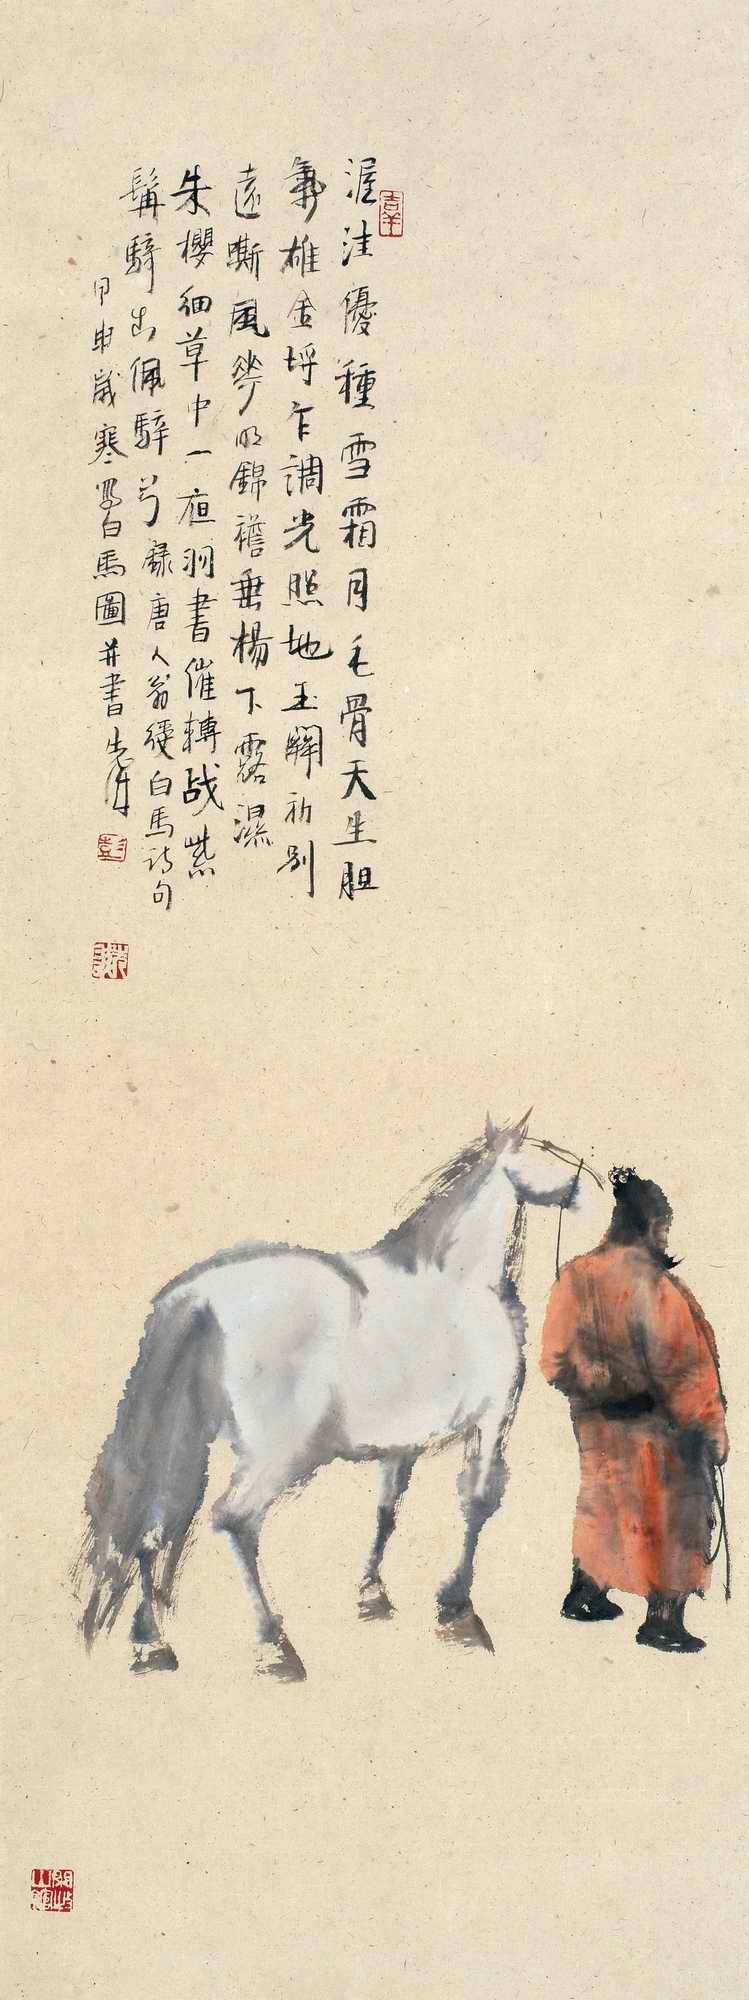 吉羊
渥洼優種雪霜同毛骨天生胆
氣雄金埒乍調光照地玉關初別
遠嘶風花明錦襜垂楊下露濕
朱櫻細草中一夜羽書催轉战紫
髯騎出佩騂弓錄唐人翁綬白馬诗句
甲申歲寒寫白馬圖并書先诚
彭